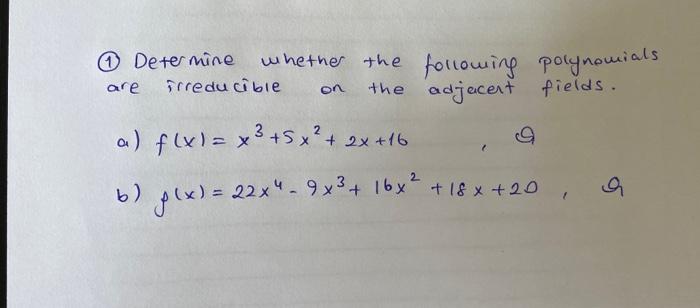 ① Determine whether the following polynomials
are irreducible on the adjacent fields.
a) f(x) = x³ + 5x² + 2x + 16 , Q
b) p(x) = 22x⁴ - 9x³ + 16x² + 18x + 20 , Q